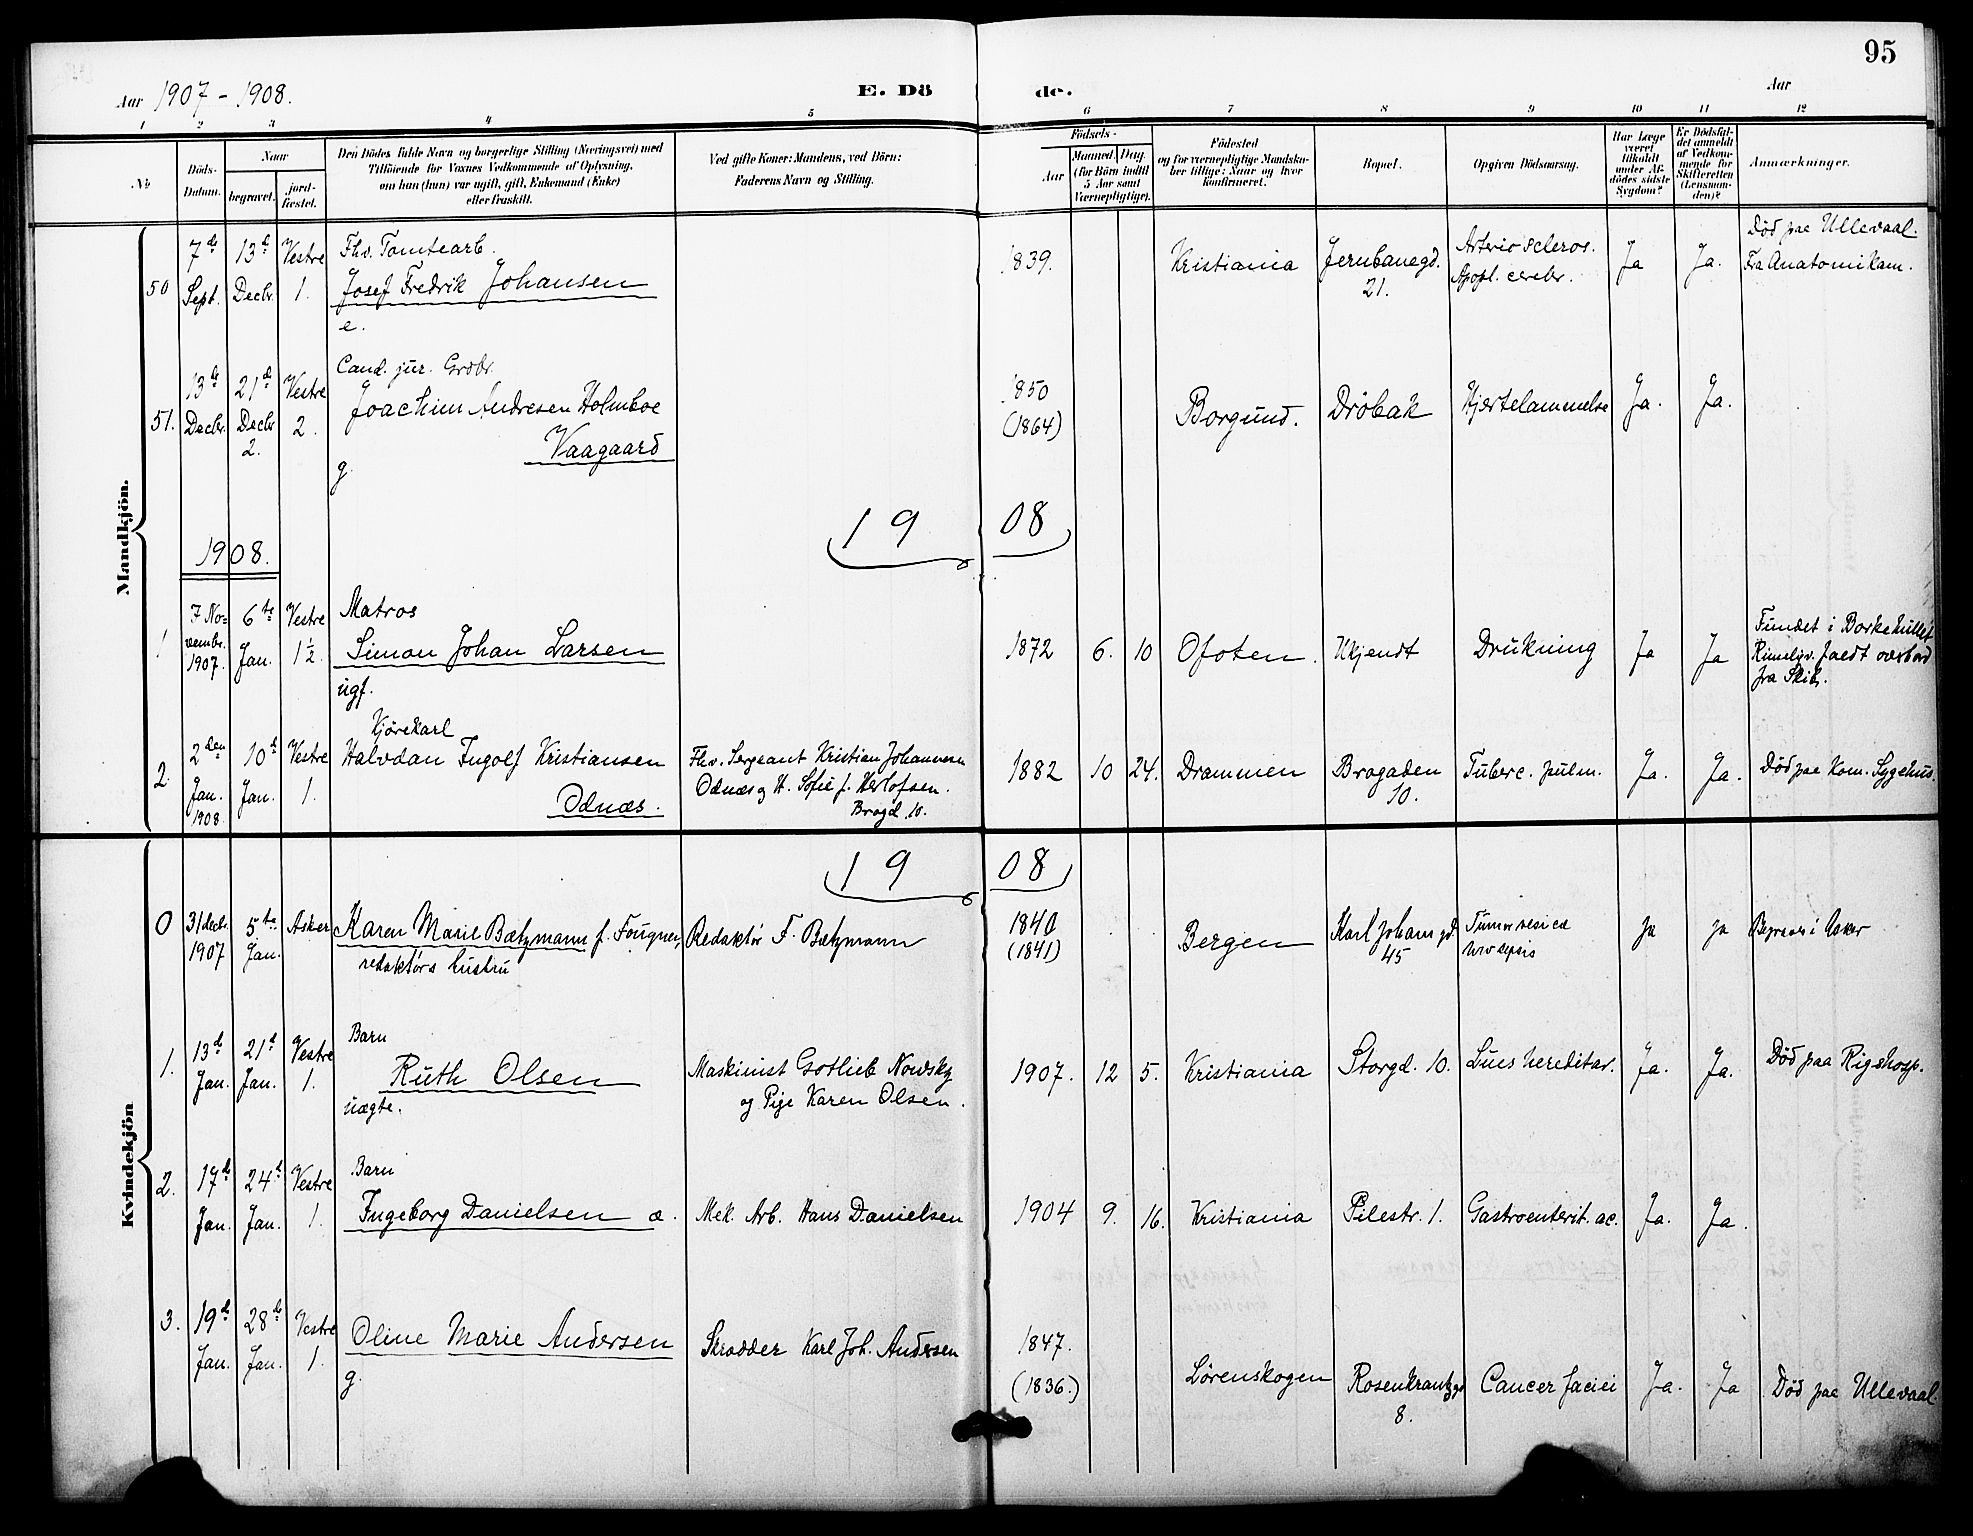 95
Aar 1907 - 1908.
E. Dö
de.
Aar
1 2 3 4 5 6 7 8 9 10 11 12
No.
Döds-
Datum.
Naar
begravet.
jord-
fæstet.
Den Dödes fulde Navn og borgerlige Stilling (Næringsvei) med
Tilföiende for Voxnes Vedkommende af Oplysning,
om han (hun) var ugift, gift, Enkemand (Enke)
eller fraskilt.
Ved gifte Koner: Mandens, ved Börn:
Faderens Navn og Stilling.
Födsels-
Aar
Maaned. Dag.
(for Börn indtil
5 Aar samt
Værnepligtige).
Födested
og for værnepligtige Mandska-
ber tillige: Naar og hvor
konfirmeret.
Bopæl.
Opgiven Dödsaarsag.
Har Læge
været
tilkaldt
under Af-
dödes sidste
Sygdom?
Er Dödsfal-
det anmeldt
af Vedkom-
mende for
Skifteretten
(Lensman-
den)?
Anmærkninger.
Mandkjön.
50
7de
Sept.
13de
Decbr.
Vestre
1.
Fhv. Tomtearb.
Josef Fredrik Johansen
e.
1839.
Kristiania
Jernbanegd.
21.
Arterioscleros.
Apopl. cerebr.
Ja
Ja.
Död paa Ullevaal.
Fra Anatomikam.
51.
13de
Decbr.
21de
Decbr
2.
Vestre
2.
Cand. jur. Grosr.
Joachim Andresen Holmboe
Vaagaard
g.
1850
(1864)
Borgund.
Dröbak
Hjertelammelse
Ja.
Ja.
1908
1908.
1
7 No-
vembr.
1907.
6te
Jan.
Vestre
1½
Matros
Simon Johan Larsen
ugf.
1872
6.
10
Ofoten.
Ukjendt
Drukning
Ja
Ja
Fundet i Borkehullet
Rimeligv. faldt overbord
fra Skib.
2.
2den
Jan.
1908
10de
Jan.
Vestre
1.
Kjörekarl
Halvdan Ingolf Kristiansen
Odnæs.
Fhv. Sergeant Kristian Johannesen
Odnæs og H. Sofie f. Herlofsen.
Brogd. 10.
1882
10
24.
Drammen
Brogaden
10.
Tuberc. pulm.
Ja.
Ja.
Död paa Kom. Sygehus.
Kvindekjön
1908
0
31 Decb.
1907
5te
Jan.
Asker
Karen Marie Bætzmann f. Fougner,
redaktörs hustru
Redaktör F. Bætzmann
1840
(1841)
Bergen
Karl Johans gd.
45
Tumor vesicæ
urosepsis
ja
ja
Begravet i Asker
1.
13de
Jan.
21de
Jan.
Vestre
1.
Barn
Ruth Olsen
uægte.
Maskinist Gotlieb Nowsky
og Pige Karen Olsen.
1907.
12
5.
Kristiania
Storgd. 10.
Lues hereditar.
Ja.
Ja.
Död paa Rigshosp.
2.
17de
Jan.
24de
Jan.
Vestre
1.
Barn
Ingeborg Danielsen æ.
Mek. Arb. Hans Danielsen
1904
9.
16.
Kristiania
Pilestr. 1.
Gastroenterit. ac.
Ja.
Ja.
3.
19de
Jan.
28de
Jan.
Vestre
1.
Oline Marie Andersen
g.
Skrædder Karl Joh. Andersen
1847.
(1836.)
Lörenskogen
Rosenkrantzgd
8.
Cancer faciei
Ja.
Ja
Död paa Ullevaal.